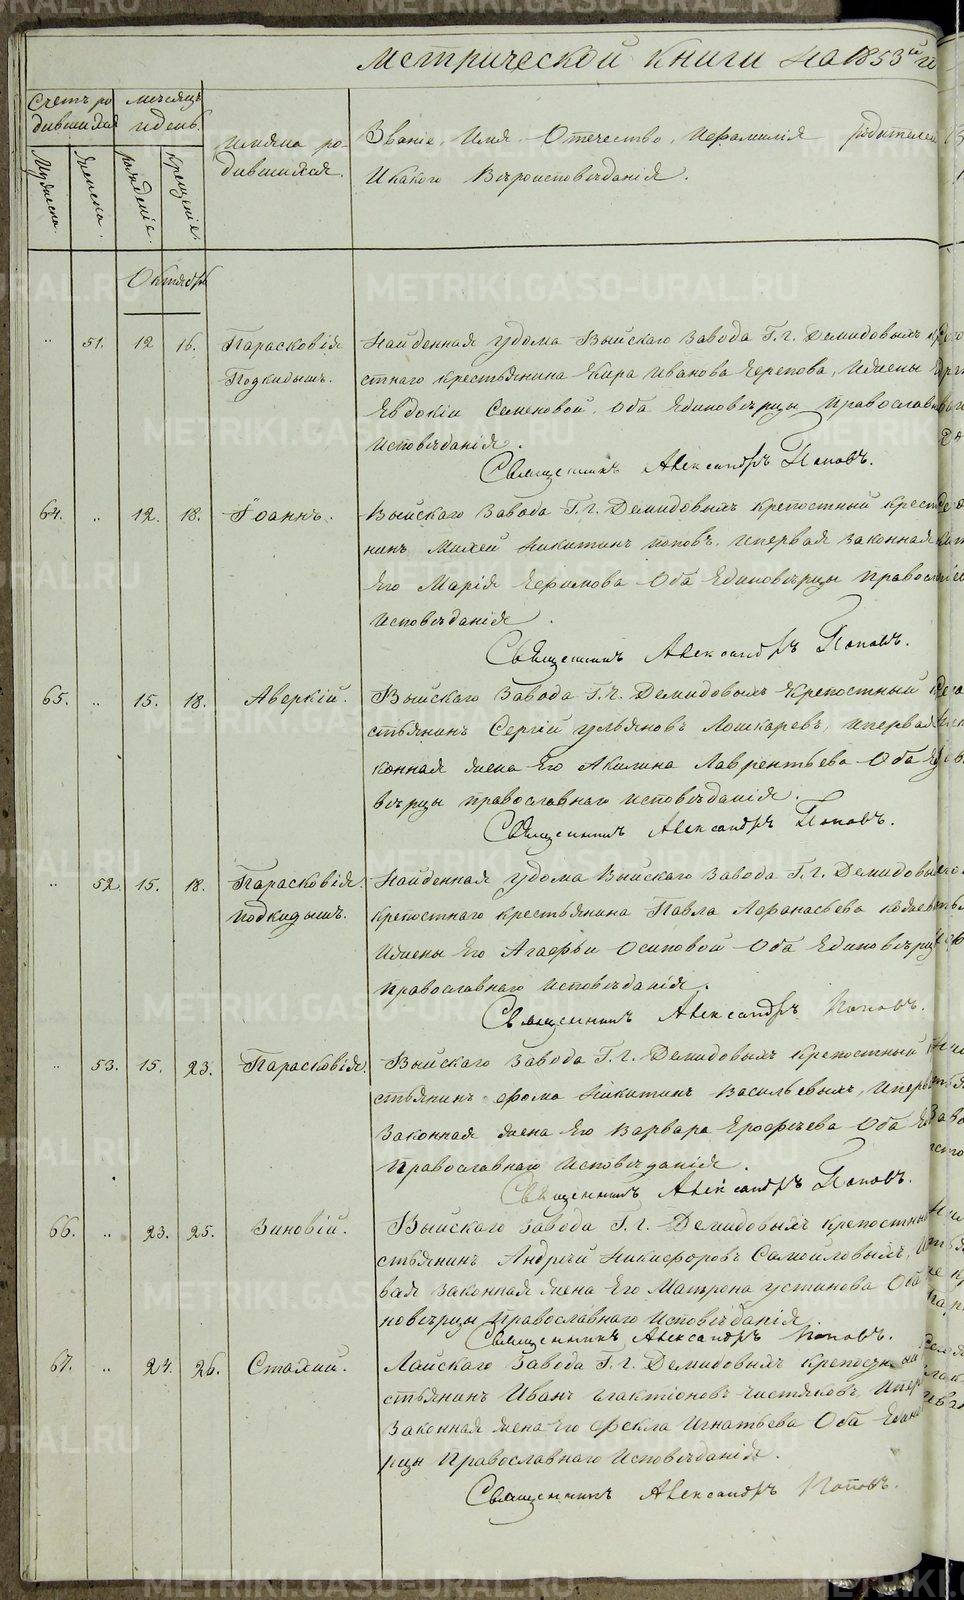 Метрической книги на 1853й го
Счетъ ро
дившихся
месяцъ
и день.
Мужеска.
женска.
рожденіе.
крещеніе.
Имяна ро-
дившихся.
Званіе, Имя, Отечество, и фамилія родителей
и какого Вѣроисповѣданія.
Октябрь
" 51. 12 16. Парасковія Найденная у дома Выйскаго завода Г. г. Демидовыхъ
Подкидышъ. стнаго крестьянина Кира Иванова Черепова, и жены
Евдокіи Семеновой, оба Единовѣрцы Православн
исповѣданія.
Священникъ Александръ Поповъ.
64. " 12. 18. Іоаннъ. Выйскаго завода Г. г. Демидовыхъ крепостный крест
нинъ Михей Никитинъ Поповъ, и первая законная
Его Марія Ефимова Оба Единовѣрцы Правосл
исповѣданія.
Священникъ Александръ Поповъ.
65. " 15. 18. Аверкій. Выйскаго завода Г. г. Демидовыхъ крепостный
стьянинъ Сергій Ульяновъ Лошкаревъ, и первая
конная жена Его Акилина Лаврентьева Оба Е
вѣрцы православнаго исповѣданія.
Священникъ Александръ Поповъ.
" 52. 15. 18. Парасковія Найденная у дома Выйскаго завода Г. г. Демидовы
подкидышъ. крепостнаго крестьянина Павла Афанасьева
и жены Его Агафьи Осиповой Оба Единовѣрц
православнаго исповѣданія.
Священникъ Александръ Поповъ.
" 53. 15. 23. Парасковія. Выйскаго завода Г. г. Демидовыхъ крепостный
стьянинъ Фома Никитинъ Васильевыхъ, и перв
Законная жена Его Варвара Ерофѣева Оба
Православнаго исповѣданія.
Священникъ Александръ Поповъ.
66. " 23. 25. Зиновій. Выйскаго завода Г. г. Демидовыхъ крепостны
стьянинъ Андрѣй Никифоровъ Самойловыхъ,
вая законная жена Его Матрона Устинова Оба
новѣрцы Православнаго исповѣданія.
Священникъ Александръ Поповъ.
67. " 24. 26. Стахій. Лайскаго завода Г. г. Демидовыхъ крепостный
стьянинъ Иванъ Галактіоновъ Чистяковъ, и пер
Законная жена его Фекла Игнатьева Оба Един
рцы Православнаго Исповѣданія.
Священникъ Александръ Поповъ.
METRIKI.GASO-URAL.RU